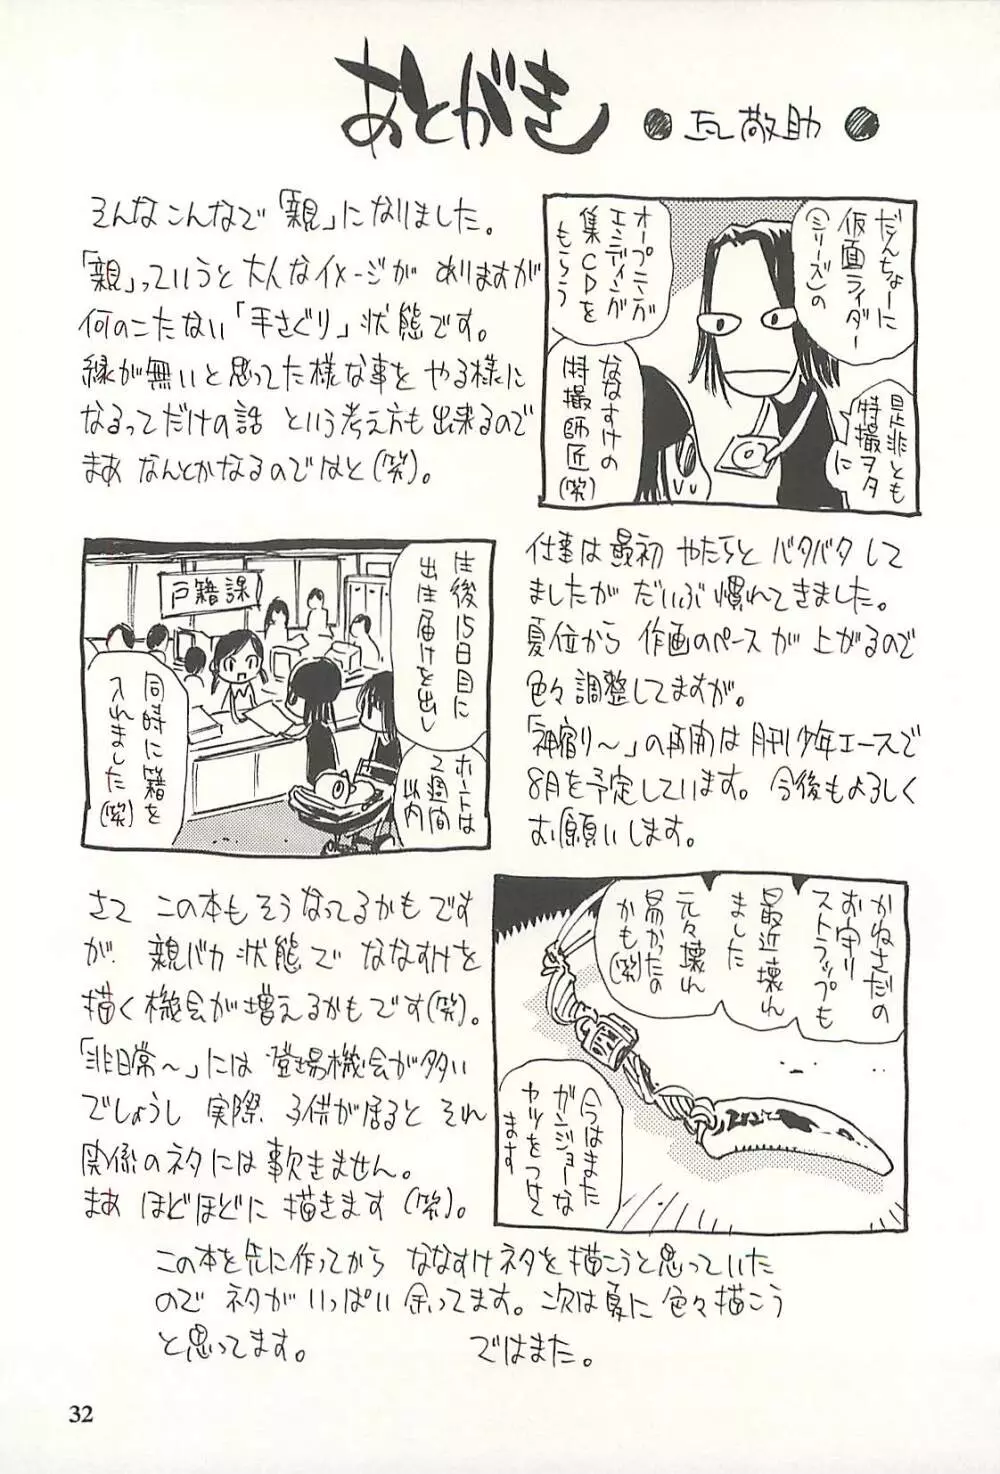 あとがき
●瓦敬助●
そんなこんなで「親」になりました。
「親」っていうと大人なイメージが ありますが
何のこたない「手さぐり」状態です。
縁が無いと思ってた様な事を やる様に
なるってだけの話 という考え方も出来るので
まあ なんとかなるのではと(笑)。
だんちょーに
仮面ライダー
(シリーズ)の
オープニング
エンディング
集CDを
もらう
是非とも
特撮ヲタ
に
ななすけの
特撮師匠
(笑)
戸籍課
生後15日目に
出生届けを出し
ホントは
2週間
以内
同時に籍を
入れました(笑)
仕事は最初 やたらと バタバタ して
ましたが だいぶ慣れてきました。
夏位から 作画のペースが 上がるので
色々調整してますが。
「神宿り～」の再開は月刊少年エースで
8月を予定しています。今後もよろしく
お願いします。
さて この本もそうなってるかもです
が 親バカ状態で ななすけを
描く機会が増えるかもです(笑)。
「非日常～」には 登場機会が多い
でしょうし 実際 子供が居ると それ
関係のネタには事欠きません。
まあ ほどほどに 描きます (笑)。
かねさだの
お守り
ストラップも
最近壊れ
ました
元々壊れ
易かったの
かも(笑)
今はまた
ガンジョーな
ヤツをつけて
ます
この本を先に作ってから ななすけネタを描こうと思っていた
ので ネタが いっぱい 余ってます。次は夏に 色々描こう
と思ってます。 ではまた。
32